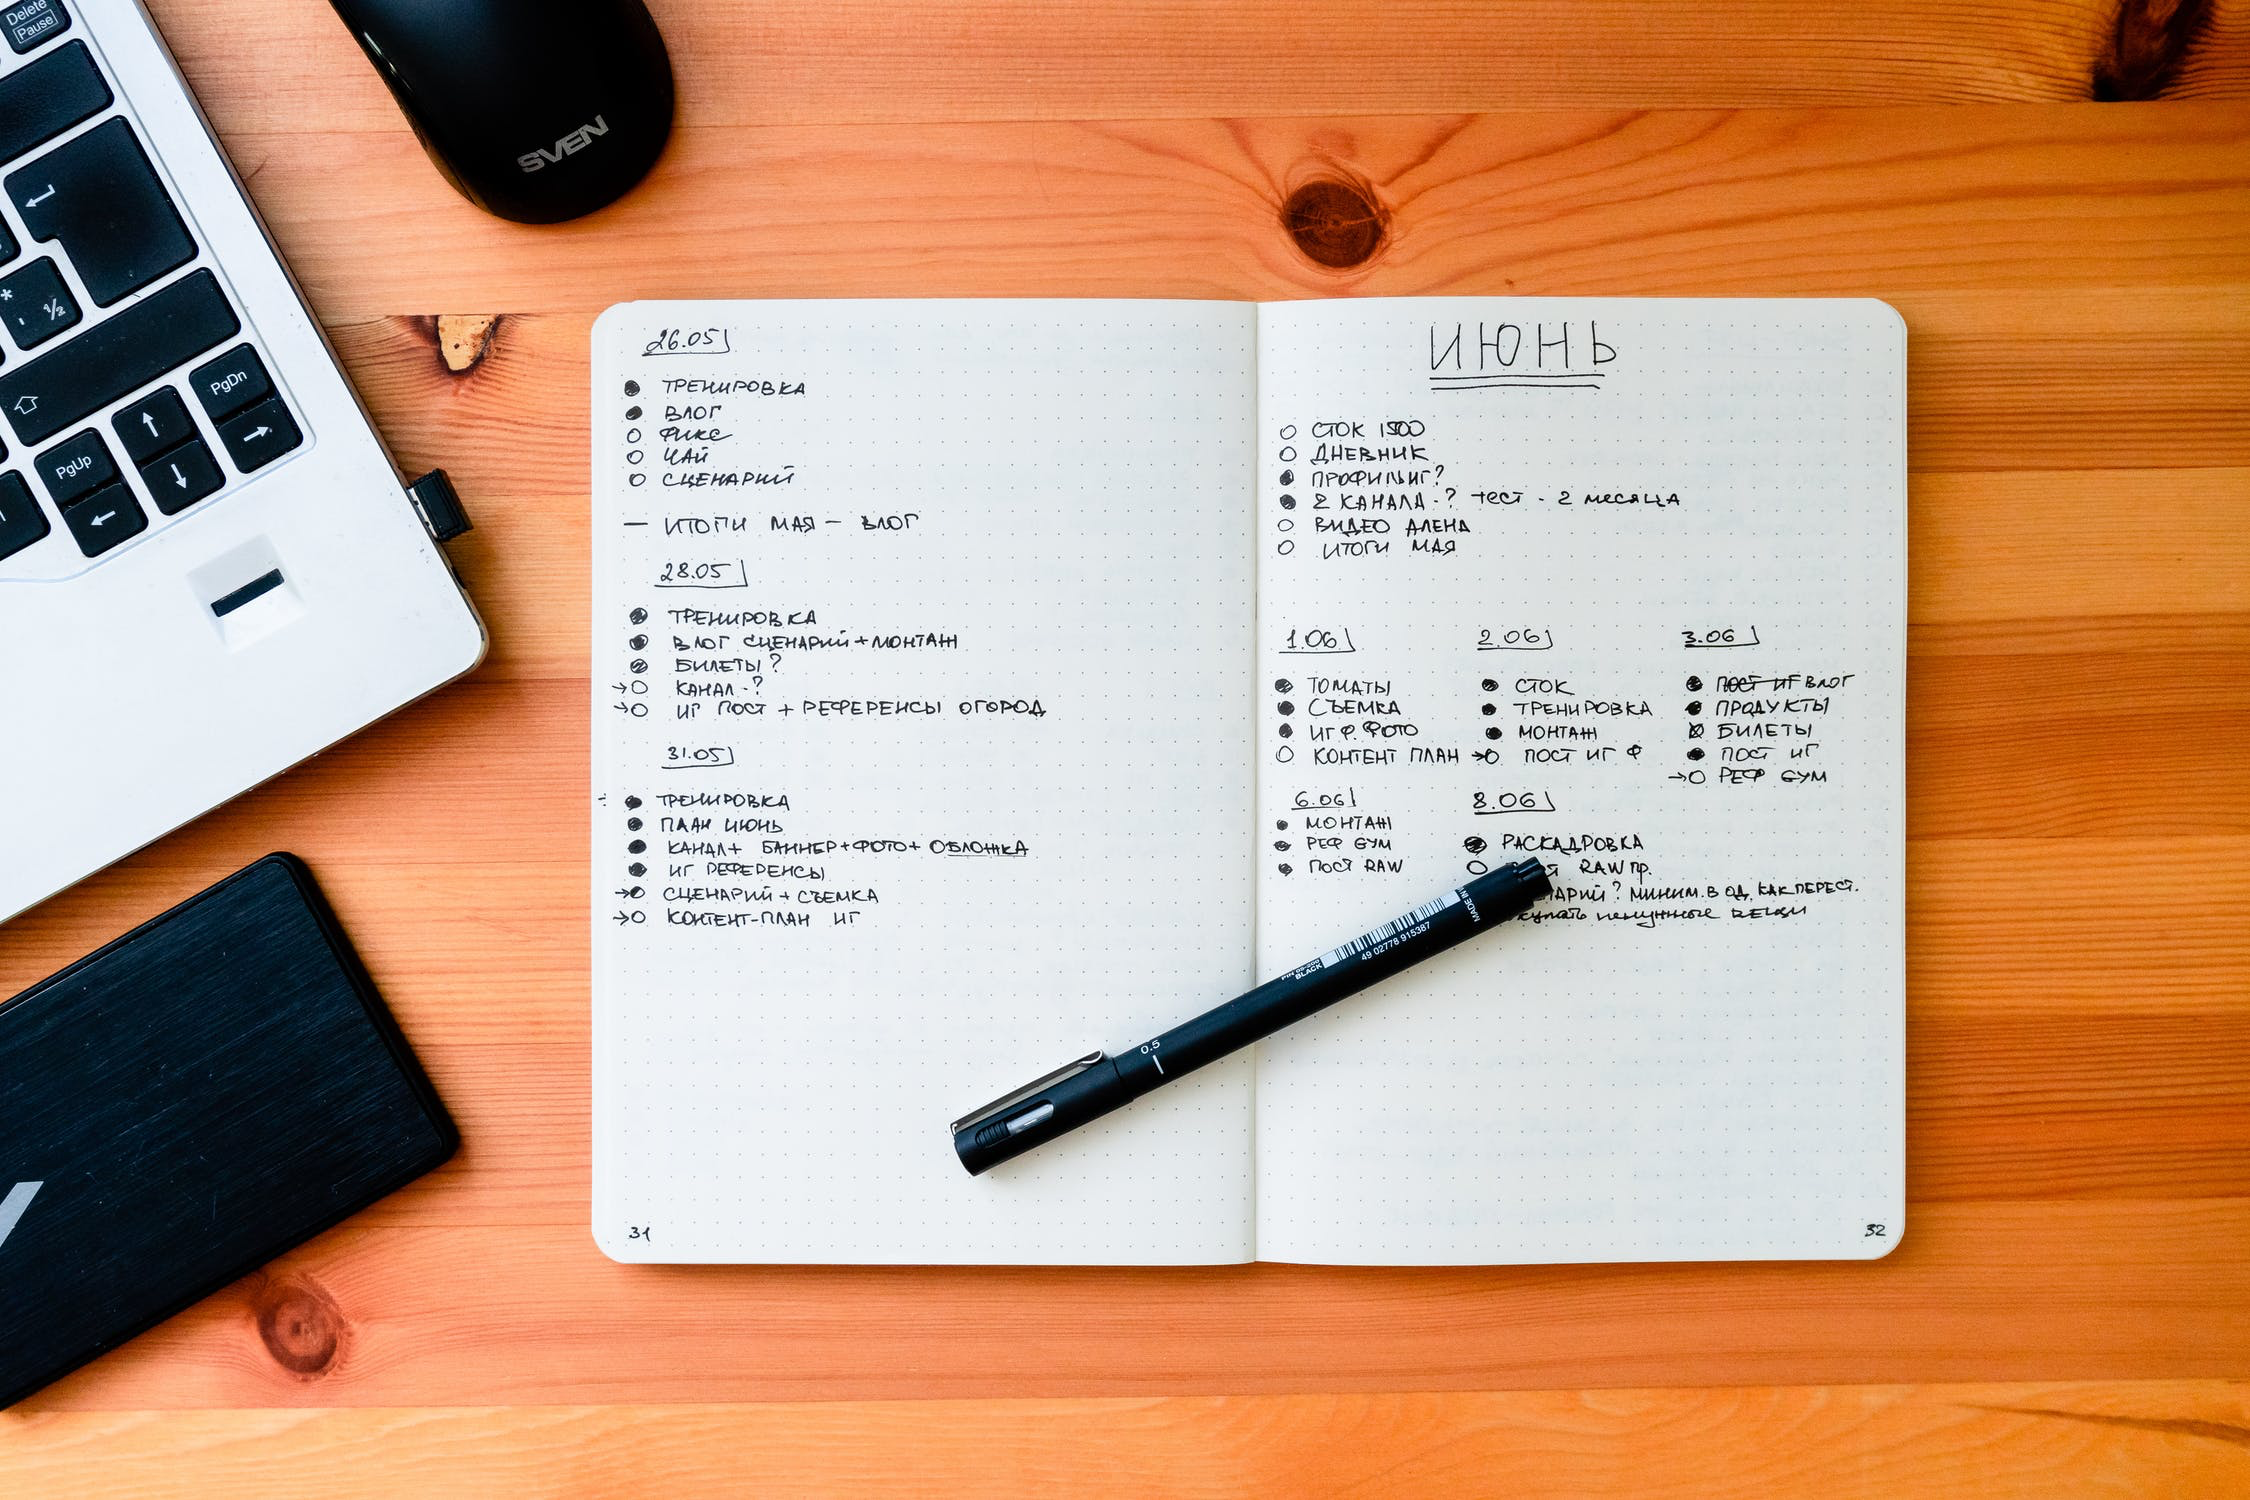 Delete
Pause
1/2
PgDn
PgUp
SVEN
26.05
ТРЕНИРОВКА
ВЛОГ
ФИКС
ЧАЙ
СЦЕНАРИЙ
— ИТОГИ МАЯ — ВЛОГ
28.05
ТРЕНИРОВКА
ВЛОГ СЦЕНАРИЙ+МОНТАЖ
БИЛЕТЫ?
→ КАНАЛ-?
→ ИГ ПОСТ + РЕФЕРЕНСЫ ОГОРОД
31.05
ТРЕНИРОВКА
ПЛАН ИЮНЬ
КАНАЛ+ БАННЕР+ФОТО+ ОБЛОЖКА
ИГ РЕФЕРЕНСЫ
→ СЦЕНАРИЙ+СЪЕМКА
→ КОНТЕНТ-ПЛАН ИГ
31
ИЮНЬ
СТОК 1500
ДНЕВНИК
ПРОФИЛЬ ИГ?
2 КАНАЛА-? тест - 2 месяца
ВИДЕО АЛЕНА
ИТОГИ МАЯ
1.06
ТОМАТЫ
СЪЕМКА
ИГ Ф. ФОТО
КОНТЕНТ ПЛАН
2.06
СТОК
ТРЕНИРОВКА
МОНТАЖ
→ ПОСТ ИГ Ф
3.06
ПОСТ ИГ ВЛОГ
ПРОДУКТЫ
БИЛЕТЫ
ПОСТ ИГ
→ РЕФ GYM
6.06
МОНТАЖ
РЕФ GYM
ПОСТ RAW
8.06
РАСКАДРОВКА
RAW пр.
? миним. в од. как перест.
ненужные вещи
32
0.5
BLACK
49 02778 915387
MADE IN